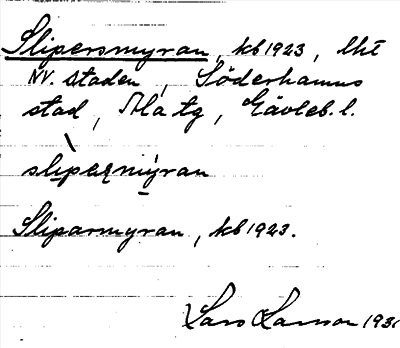 Slipersmyran, kb 1923, lht
NV. staden, Söderhamns
stad, Ala tg, Gävleb. l.
slipermyran
Sliparmyran, kb 1923.
Lars Larsson 1931